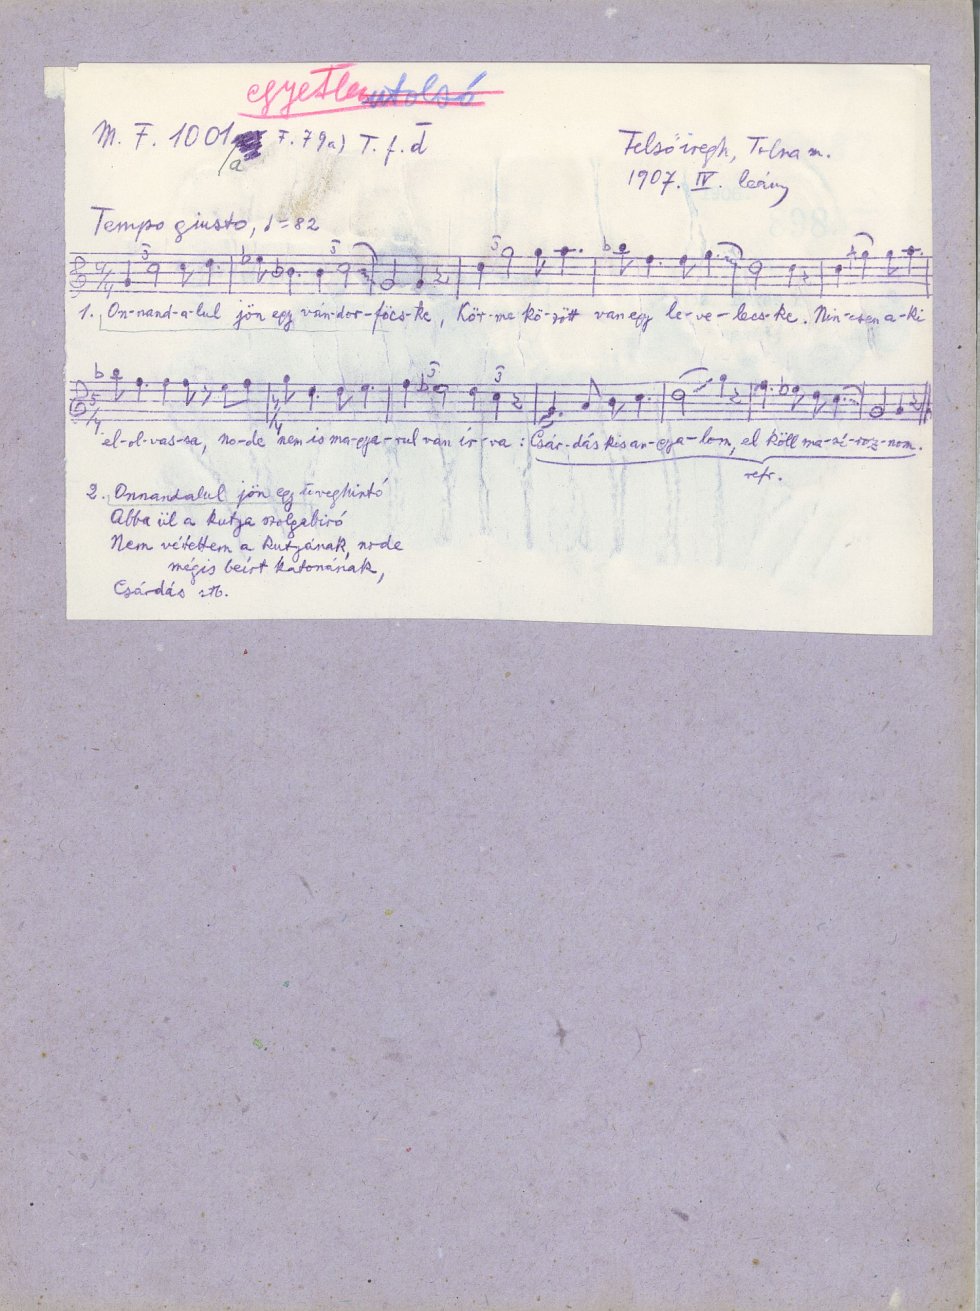 egyetlen utolsó
M. F. 1001 a F. 79a) T. f. d
Felsőiregh, Tolna m.
1907. IV. leány
Tempo giusto, ♩=82
1. On-nand-a-lul jön egy ván-dor-föcs-ke, Kör-me kö-zött van egy le-ve-lecs-ke. Nin-csen a-ki
el-ol-vas-sa, no-de nem is ma-gya-rul van ír-va: Csár-dás kis an-gya-lom, el köll ma-sí-roz-nom.
refr.
2. Onnandalul jön egy üveghintó
Abba ül a kutya szolgabiró
Nem vétettem a kutyának, no de
mégis beirt katonának,
Csárdás stb.